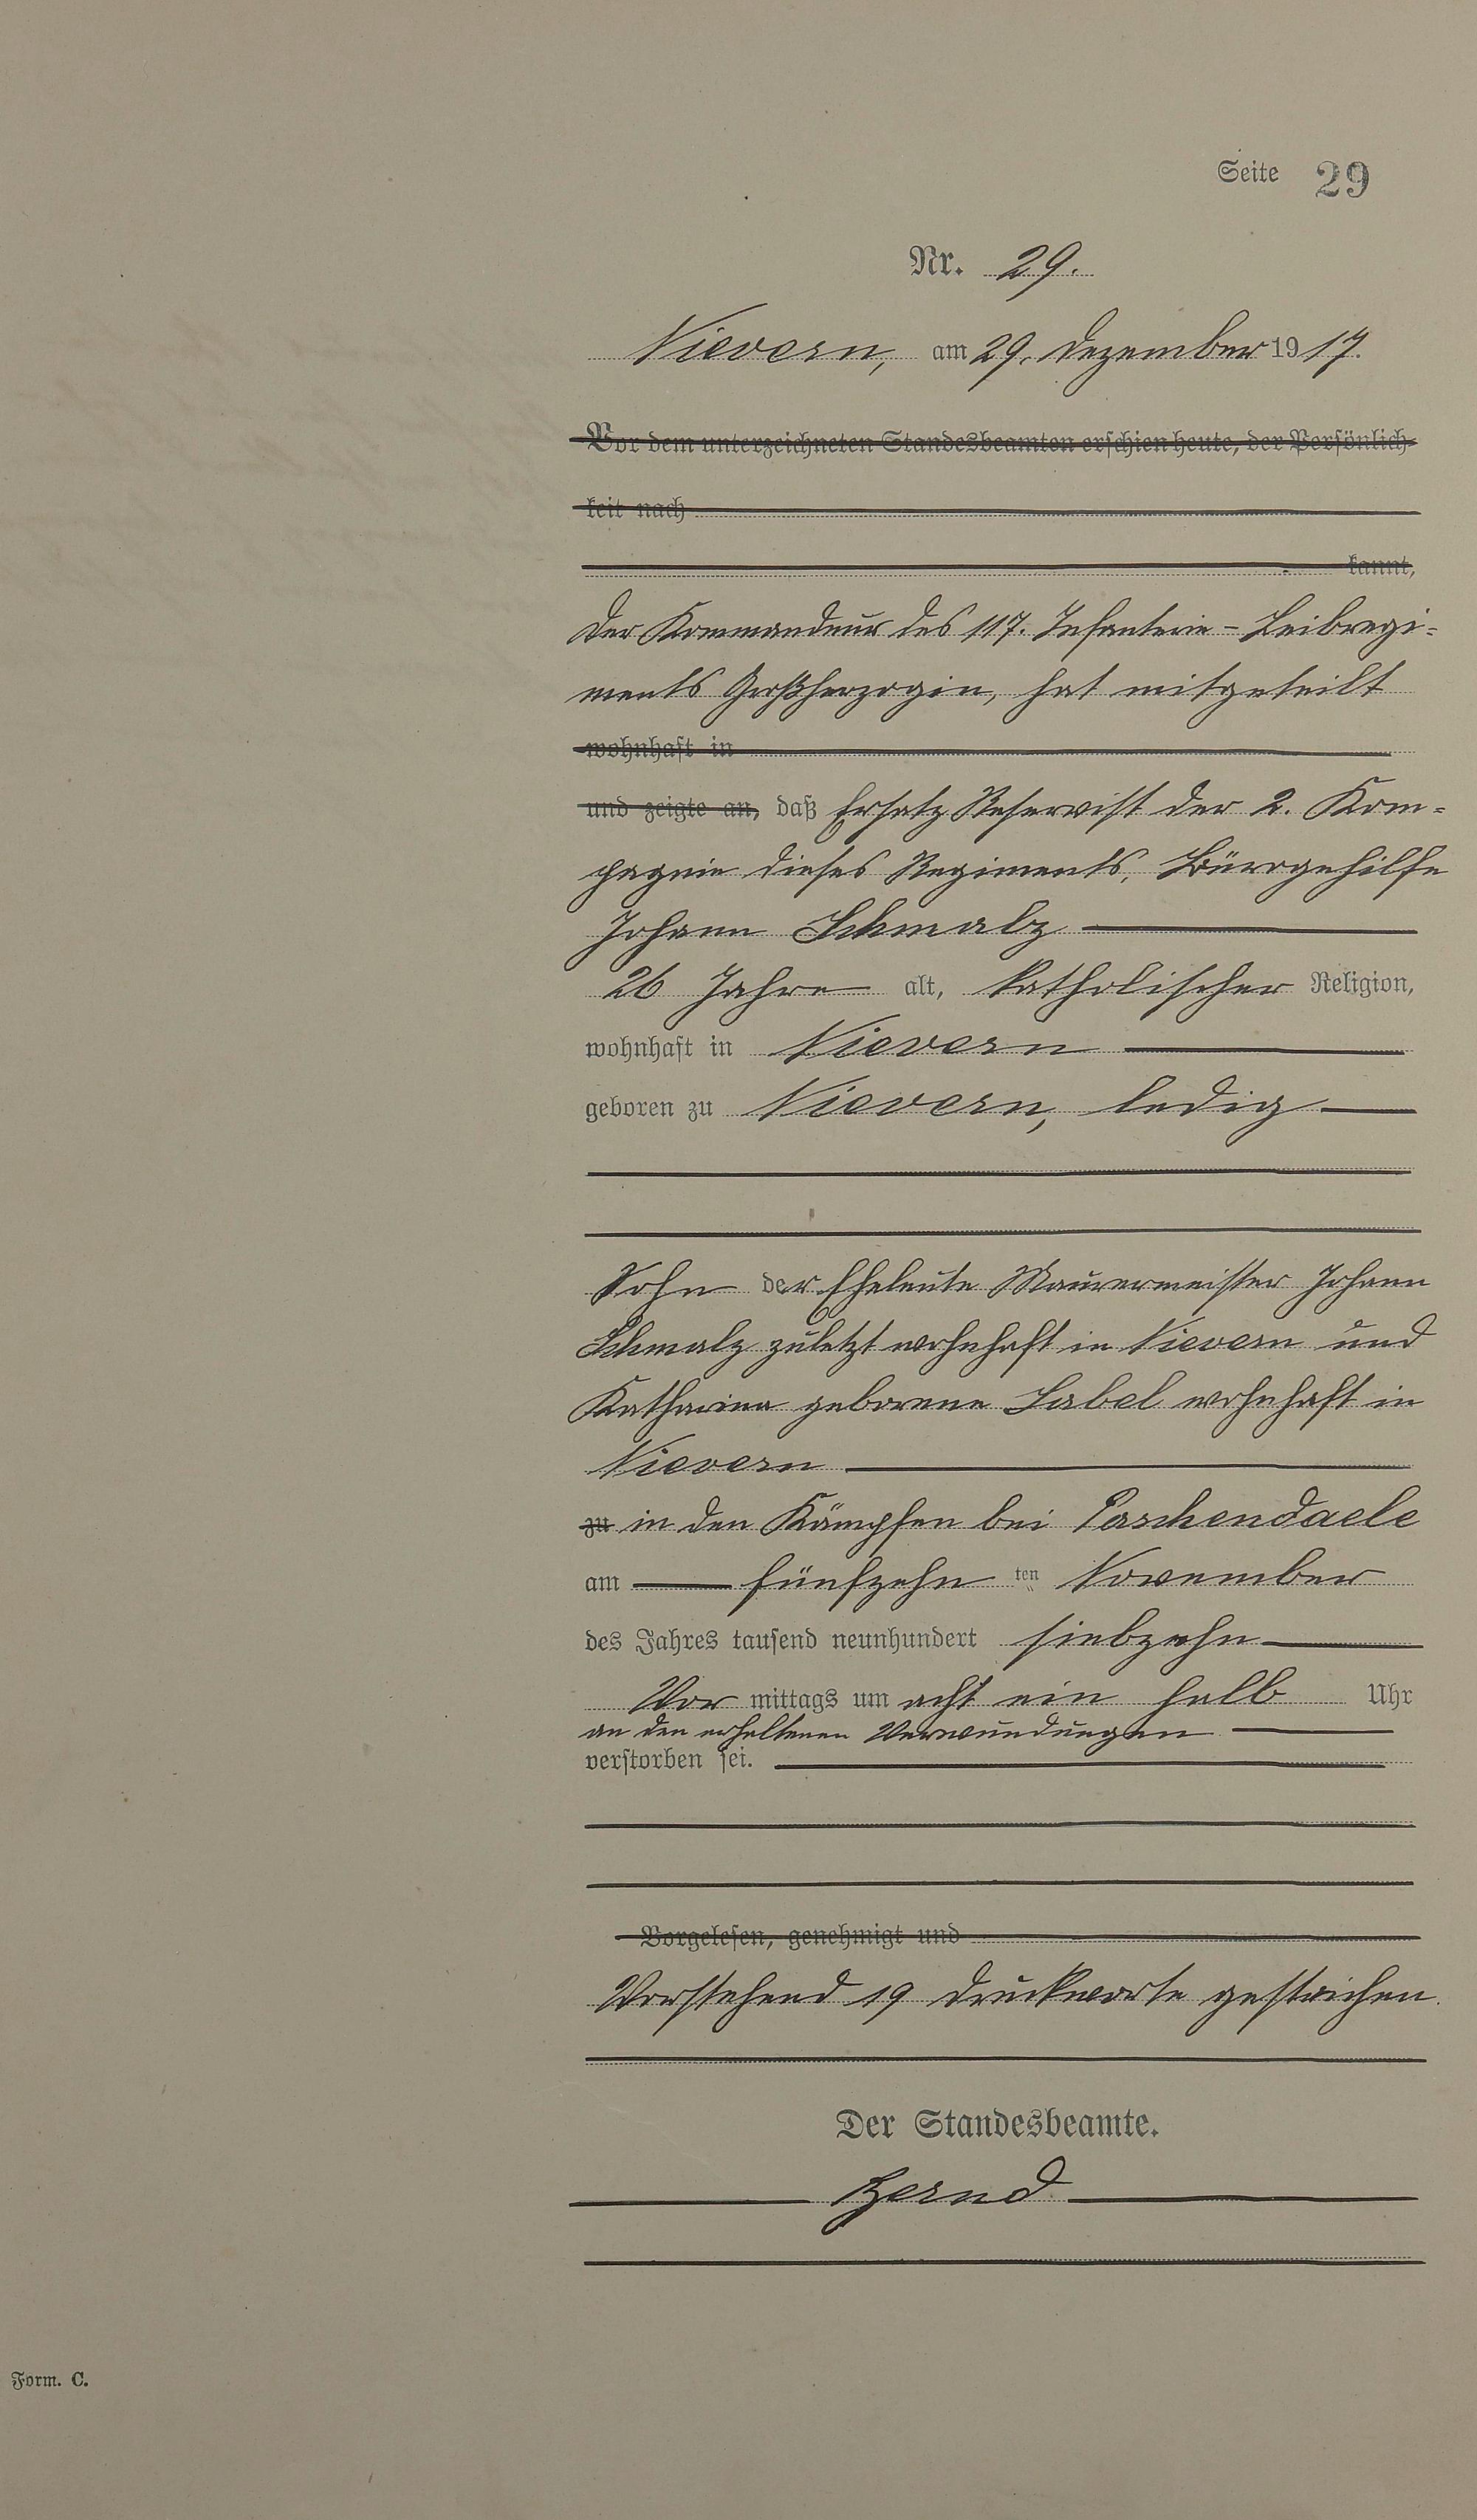 Seite 29
Nr. 29.
Nievern, am 29. Dezember 1917.
Vor dem unterzeichneten Standesbeamten erschien heute, der Persönlich-
keit nach
kannt,
Der Kommandeur des 117. Infanterie-Leibregi-
ments Großherzogin, hat mitgeteilt
wohnhaft in
und zeigte an, daß Ersatz Reservist der 2. Kom-
pagnie dieses Regiments, Bürogehilfe
Johann Schmalz
26 Jahre alt, katholischer Religion,
wohnhaft in Nievern
geboren zu Nievern, ledig
Sohn der Eheleute Maurermeister Johann
Schmalz zuletzt wohnhaft in Nievern und
Katharina geborene Label wohnhaft in
Nievern
zu in den Kämpfen bei Paschendaele
am fünfzehn ten November
des Jahres tausend neunhundert siebzehn
Vor mittags um acht ein halb Uhr
an den erhaltenen Verwundungen
verstorben sei.
Vorgelesen, genehmigt und
Vorstehend 19 Druckworte gestrichen.
Der Standesbeamte.
Zernd
Form. C.